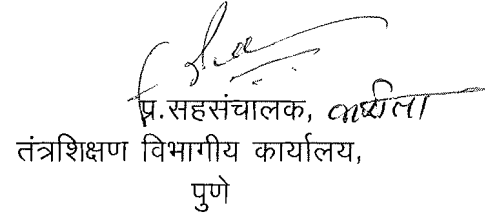 प्र.सहसंचालक,
तंत्रशिक्षण विभागीय कार्यालय,
पुणे